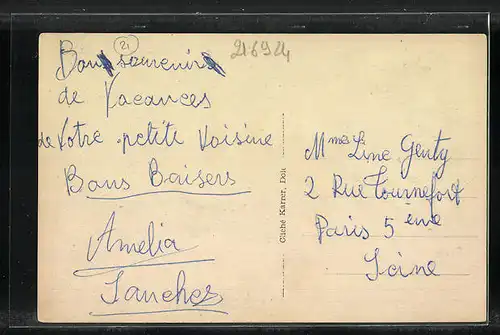 21
21-6924
Bon souvenir
de Vacances
de Votre petite Voisine
Bons Baisers
Amelia
Sanchez
Cliché Karrer, Dole
Mme Line Genty
2 Rue Tournefort
Paris 5 eme
Seine